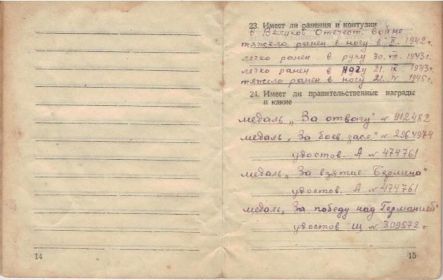 23. Имеет ли ранения и контузии
В Великой Отечест. войне
тяжело ранен в ногу в 1942 г.
легко ранен в руку 30. 1943 г.
легко ранен в ногу 21. 1943 г.
тяжело ранен в ногу 21. 1945 г.
24. Имеет ли правительственные награды
и какие
медаль „За отвагу" № 912482
медаль „За боев. засл." № 2964974
удостов. А № 474761
медаль „За взятие Берлина"
удостов. А № 474761
медаль „За победу над Германией"
удостов Щ № 309573
14
15